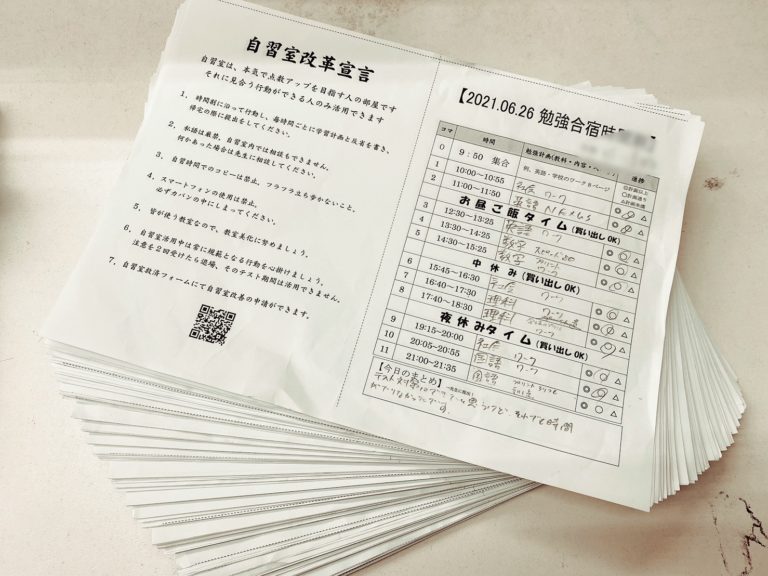 自習室改革宣言
自習室は、本気で点数アップを目指す人の部屋です
それに見合う行動ができる人のみ活用できます
1. 時間割に沿って行動し、毎時間ごとに学習計画と反省を書き、
帰宅の際に提出をしてください。
2. 私語は厳禁。自習室内では相談もできません。
何かあった場合は先生に相談してください。
3. 自習時間でのコピーは禁止。フラフラ立ち歩かないこと。
4. スマートフォンの使用は禁止。
必ずカバンの中にしまってください。
5. 皆が使う教室なので、教室美化に努めましょう。
6. 自習室活用中は常に規範となる行動を心掛けましょう。
注意を2回受けたら退場、そのテスト期間は活用できません。
7. 自習室救済フォームにて自習室改善の申請ができます。
【2021.06.26 勉強合宿時
コマ 時間 勉強計画(教科・内容・ペ 進捗
0 9:50 集合 例、英語・学校のワーク8ページ ◎計画以上
○計画通り
△計画未達
1 10:00~10:55 社会 ワーク
2 11:00~11:50 英語 ◎ ○ △
お昼ご飯タイム(買い出しOK)
3 12:30~13:25 ワーク ◎ ○ △
4 13:30~14:25 数学 ◎ ○ △
5 14:30~15:25 数学 プリント ワーク ◎ ○ △
中休み(買い出しOK)
6 15:45~16:30 社会 ワーク ◎ ○ △
7 16:40~17:30 理科 ワーク ◎ ○ △
8 17:40~18:30 理科 ワーク ◎ ○ △
夜休みタイム(買い出しOK)
9 19:15~20:00 社会 ワーク ◎ ○ △
10 20:05~20:55 国語 ワーク ◎ ○ △
11 21:00~21:35 国語 プリント ◎ ○ △
【今日のまとめ】
テスト対策は と思うけど それでも時間
がたりなかったです。